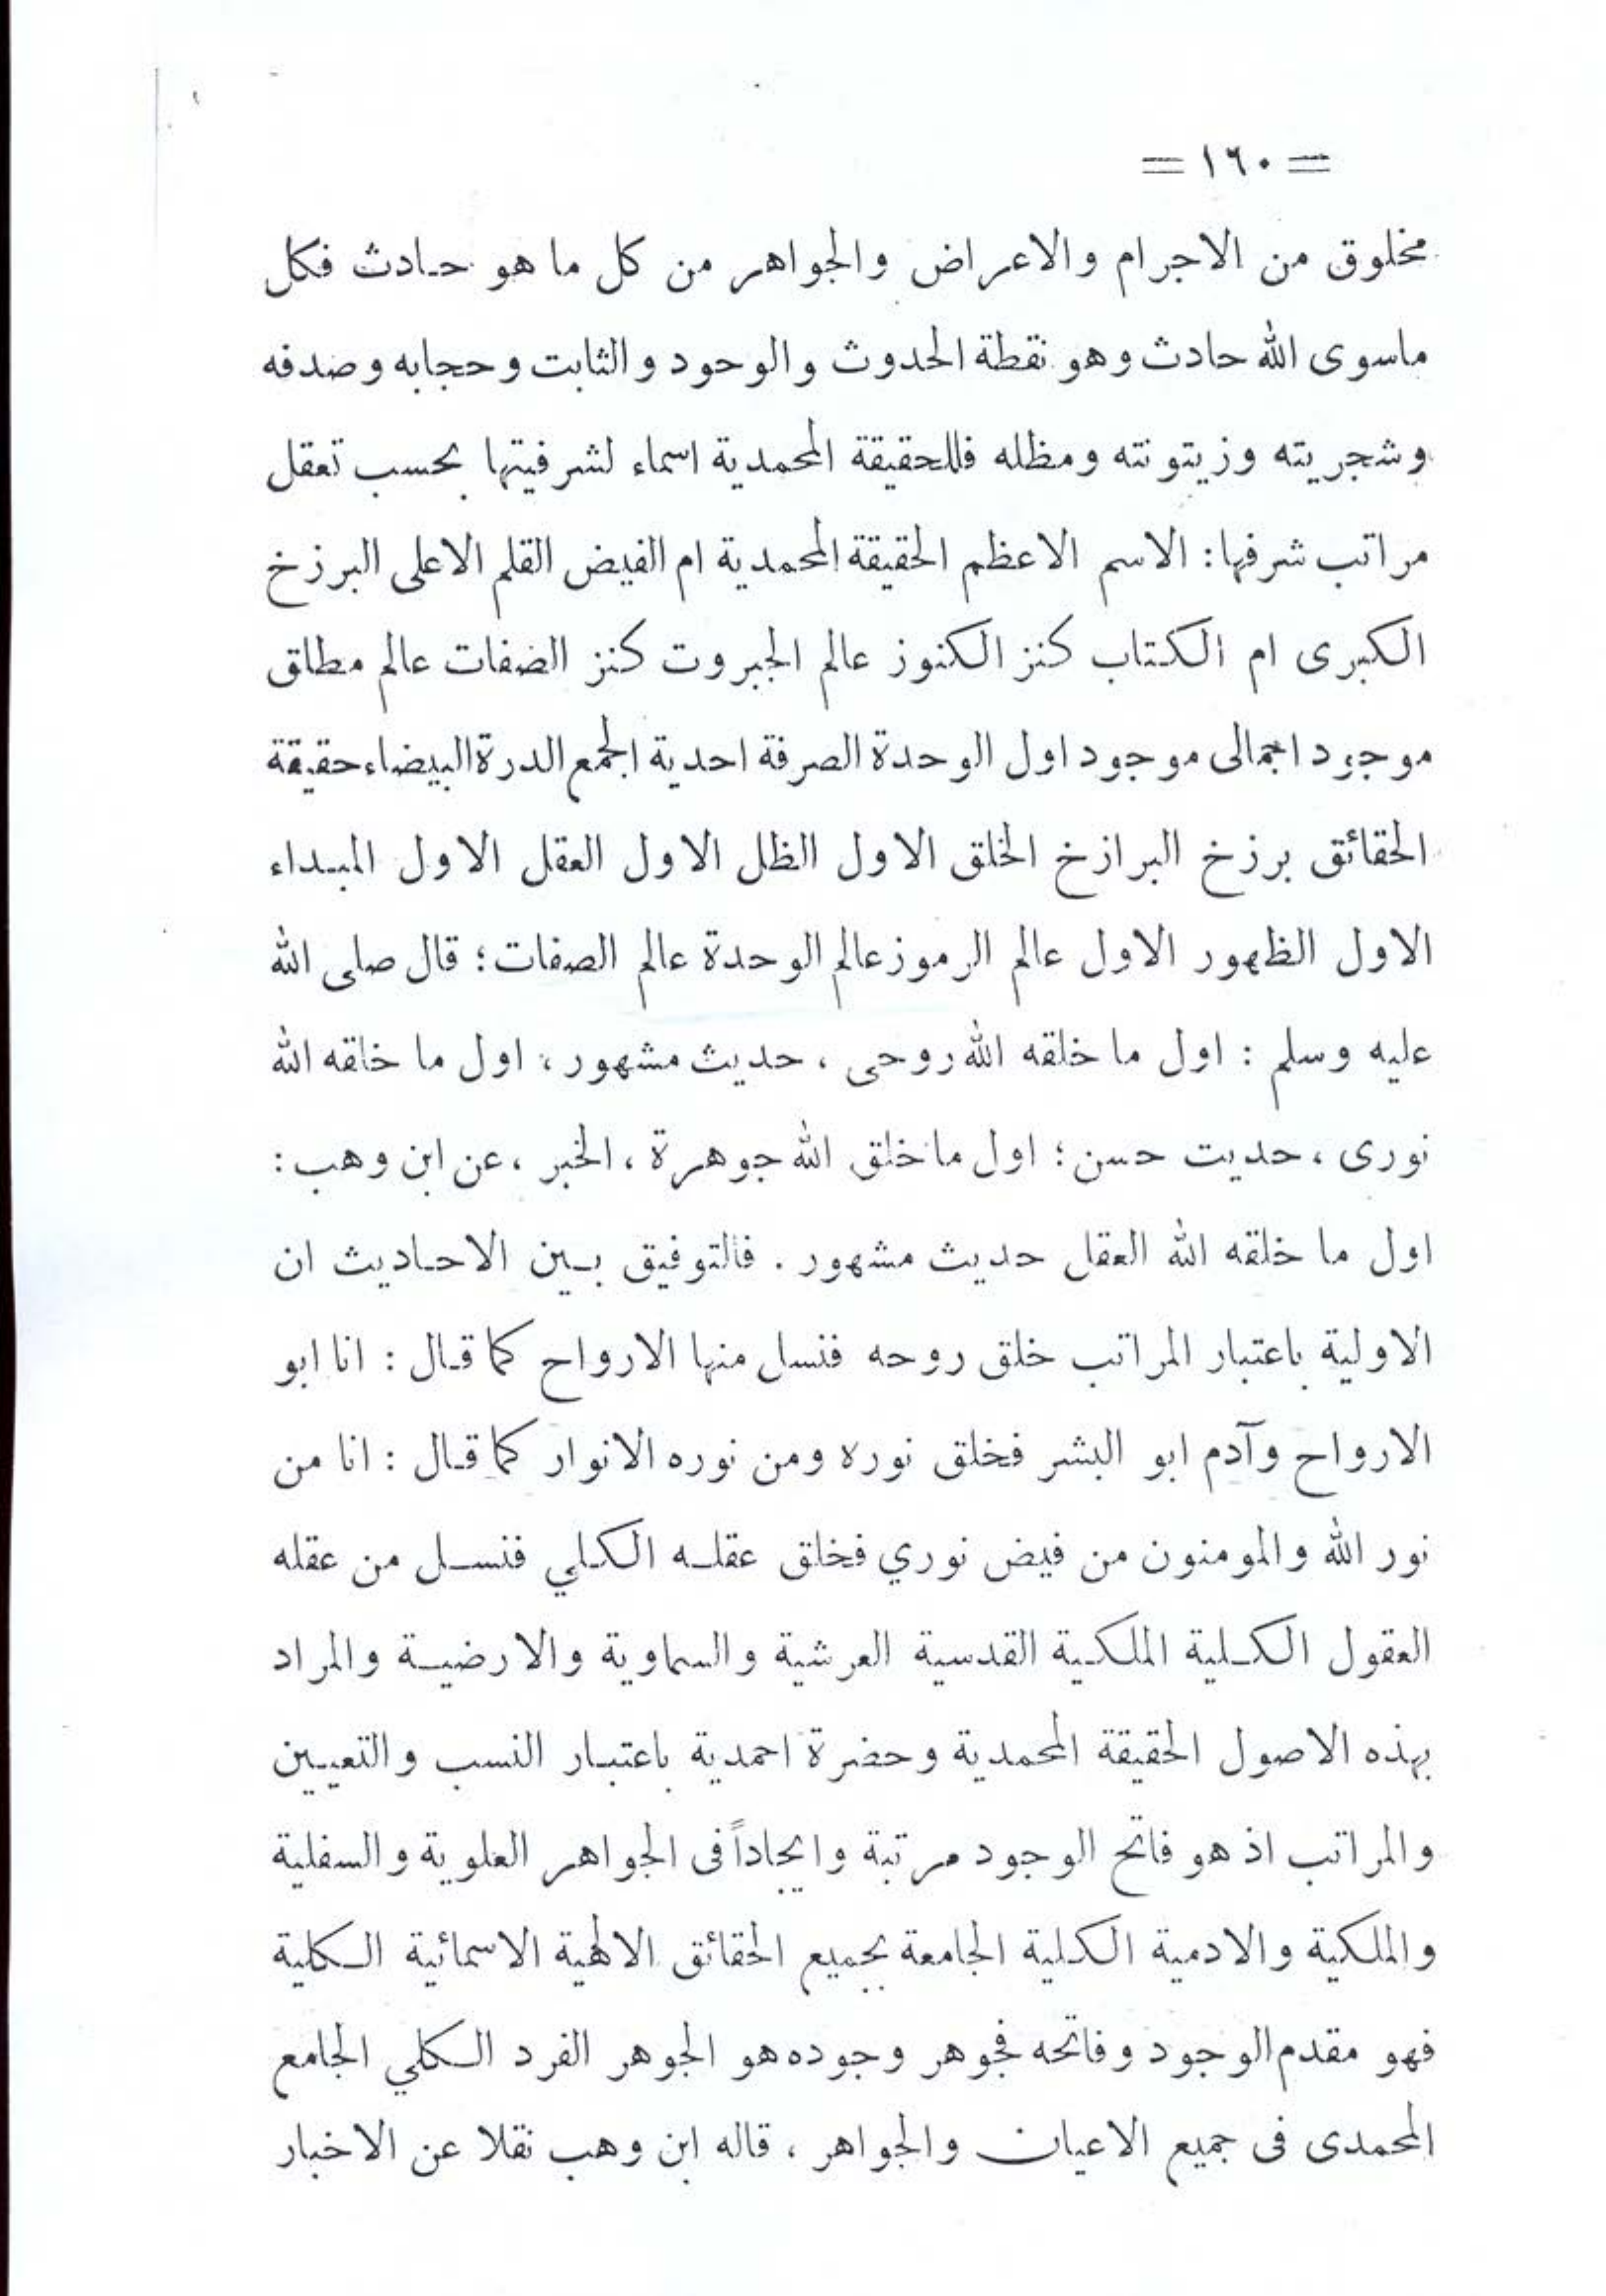 = ١٦٠ =
مخلوق من الاجرام والاعراض والجواهر من كل ما هو حادث فكل
ماسوى الله حادث وهو نقطة الحدوث والوحود والثابت وحجابه وصدفه
وشجريته وزيتونته ومظله فللحقيقة المحمدية اسماء لشرفيتها بحسب تعقل
مراتب شرفها : الاسم الاعظم الحقيقة المحمدية ام الفيض القلم الاعلى البرزخ
الكبرى ام الكتاب كنز الكنوز عالم الجبروت كنز الضفات عالم مطلق
موجود اجمالى موجود اول الوحدة الصرفة احدية الجمع الدرة البيضاء حقيقة
الحقائق برزخ البرازخ الخلق الاول الظل الاول العقل الاول المبداء
الاول الظهور الاول عالم الرموز عالم الوحدة عالم الصفات ؛ قال صلى الله
عليه وسلم : اول ما خلقه الله روحى ، حديث مشهور ، اول ما خلقه الله
نورى ، حديت حسن ؛ اول ما خلق الله جوهرة ، الخبر ، عن ابن وهب :
اول ما خلقه الله العقل حديث مشهور . فالتوفيق بين الاحاديث ان
الاولية باعتبار المراتب خلق روحه فنسل منها الارواح كما قال : انا ابو
الارواح وآدم ابو البشر فخلق نوره ومن نوره الانوار كما قال : انا من
نور الله والمومنون من فيض نوري فخلق عقله الكلي فنسل من عقله
العقول الكلية الملكية القدسية العرشية والسماوية والارضية والمراد
بهذه الاصول الحقيقة المحمدية وحضرة احمدية باعتبار النسب والتعيين
والمراتب اذ هو فاتح الوجود مرتبة وايجاداً فى الجواهر العلوية والسفلية
والملكية والادمية الكلية الجامعة بجميع الحقائق الالهية الاسمائية الكلية
فهو مقدم الوجود وفاتحه فجوهر وجوده هو الجوهر الفرد الكلي الجامع
المحمدى فى جميع الاعيان والجواهر ، قاله ابن وهب نقلا عن الاخبار